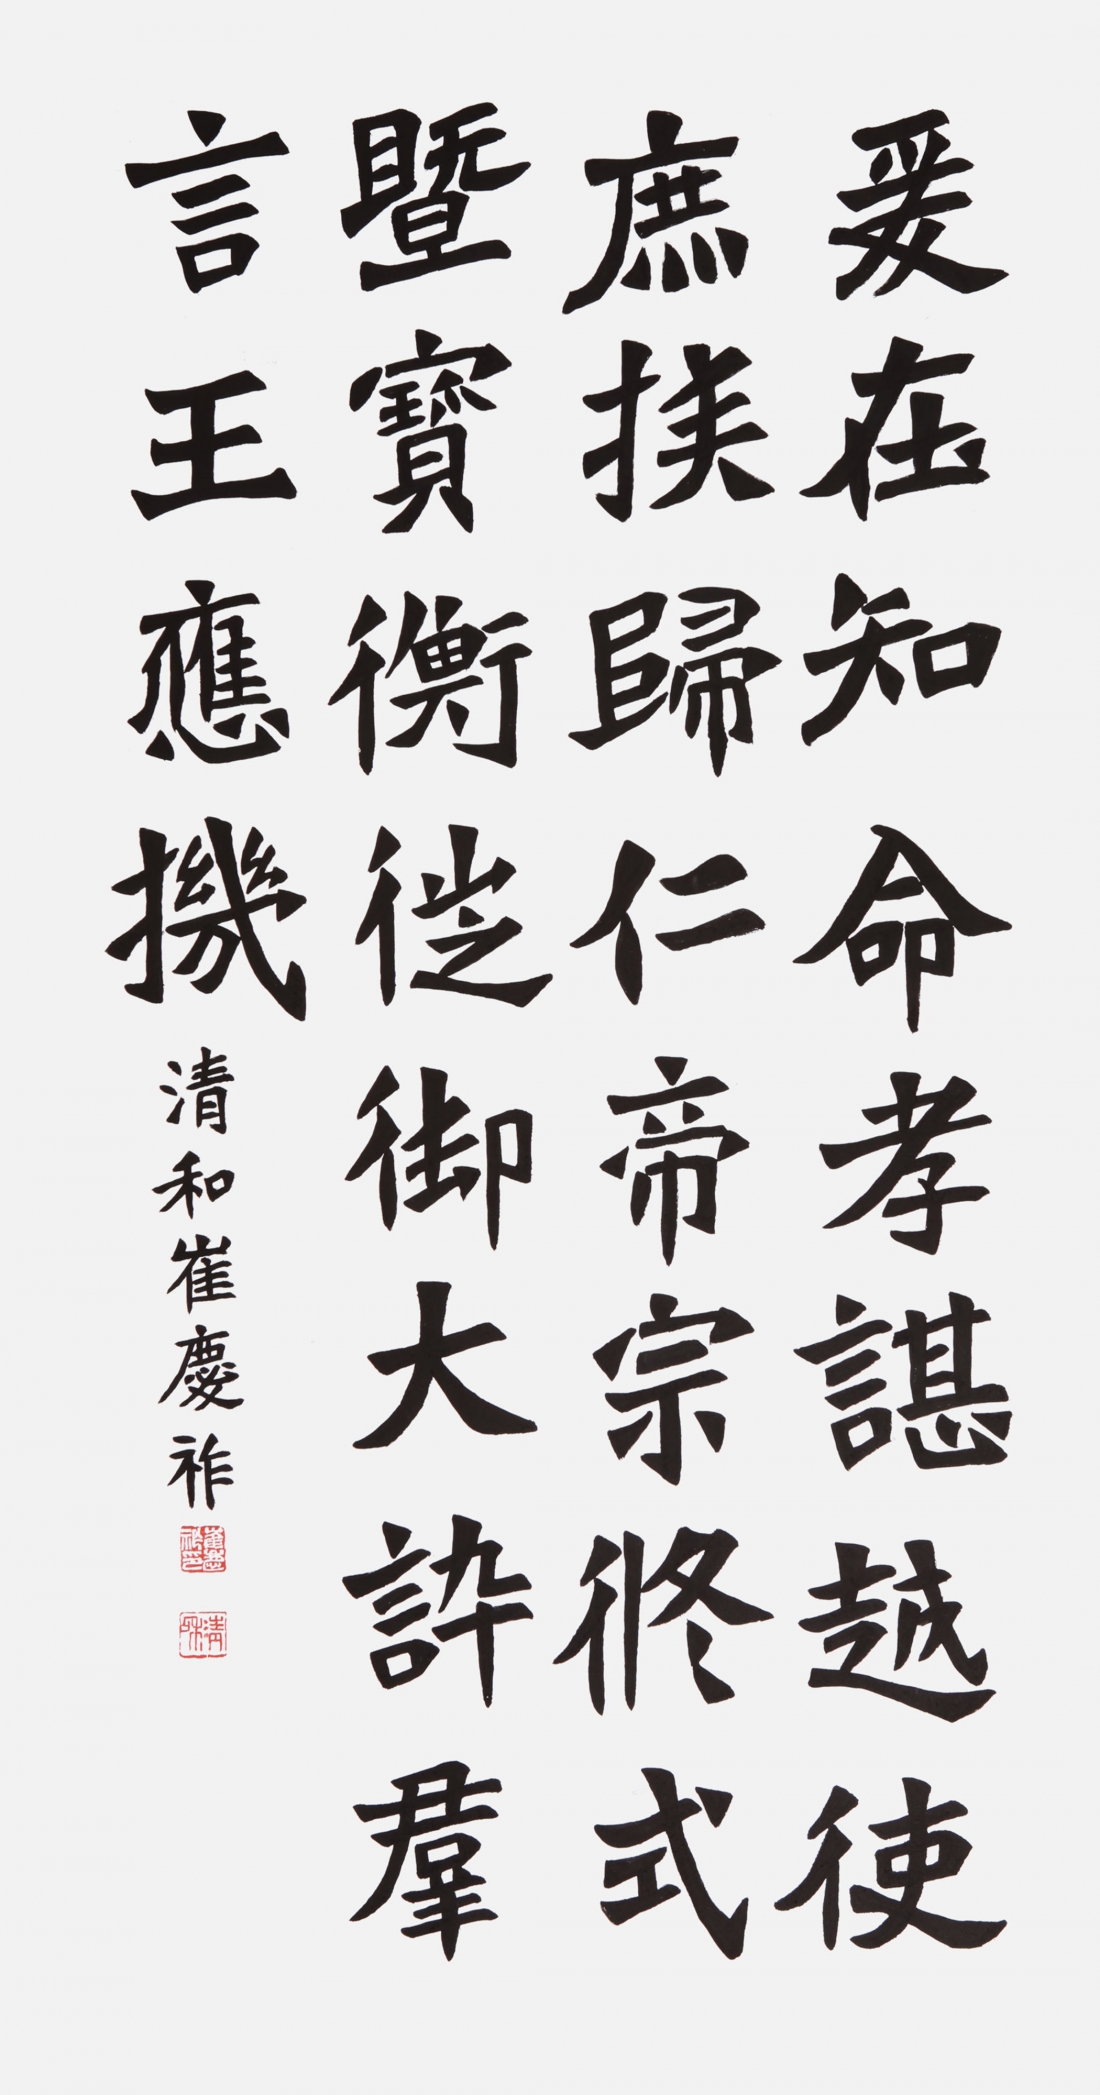 爰在知命孝諶越使
庶揆歸仁帝宗脩式
暨寶衡徙御大訸羣
言王應機
清和崔慶祚